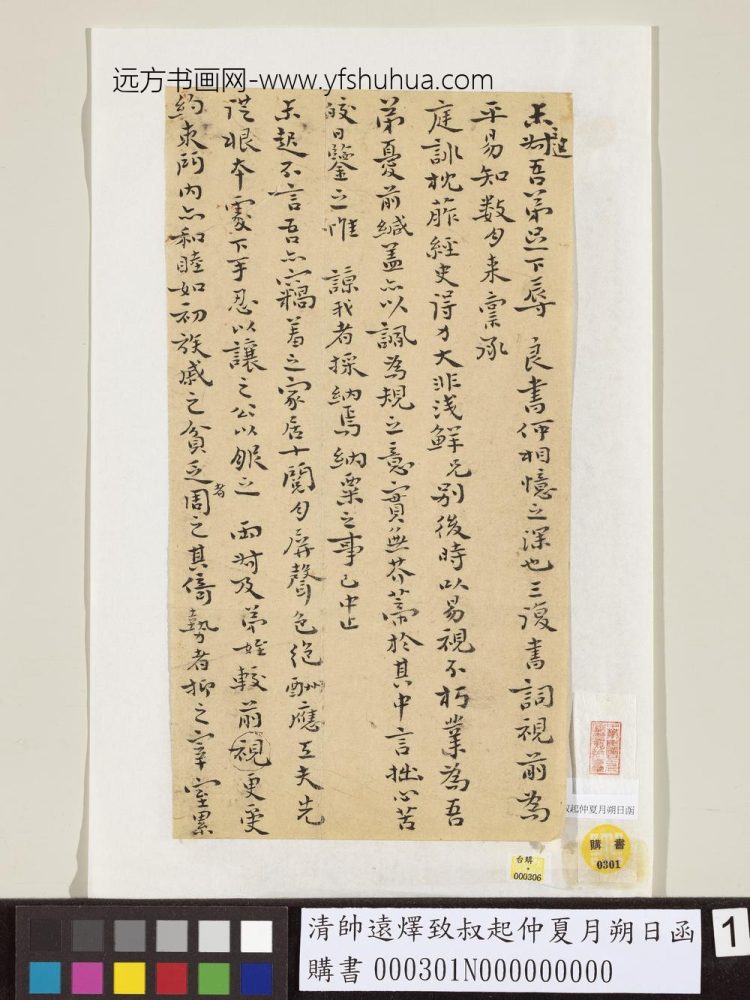 远方书画网-www.yfshuhua.com
吾弟足下辱 良書仰相憶之深也三復書詞視前為
平易知數月来稟承
庭訓枕葄經史得力大非浅鮮兄別後時以易視不朽業為吾
弟憂前緘盖亦以諷為規之意實無芥蒂於其中言拙心苦
皎日鑒之惟 諒我者採納焉納粟之事已中止
不言吾亦竊羞之家居十閱月屏聲色絕酬應工夫先
從根本處下手忍以讓之公以服之 兩 及弟姪較前視更受
約束所内亦和睦如初族戚之貧乏者周之其倚勢者抑之 室累
叔起仲夏月朔日函
購書
0301
台購
000306
清帥遠燡致叔起仲夏月朔日函
購書 000301N000000000
1